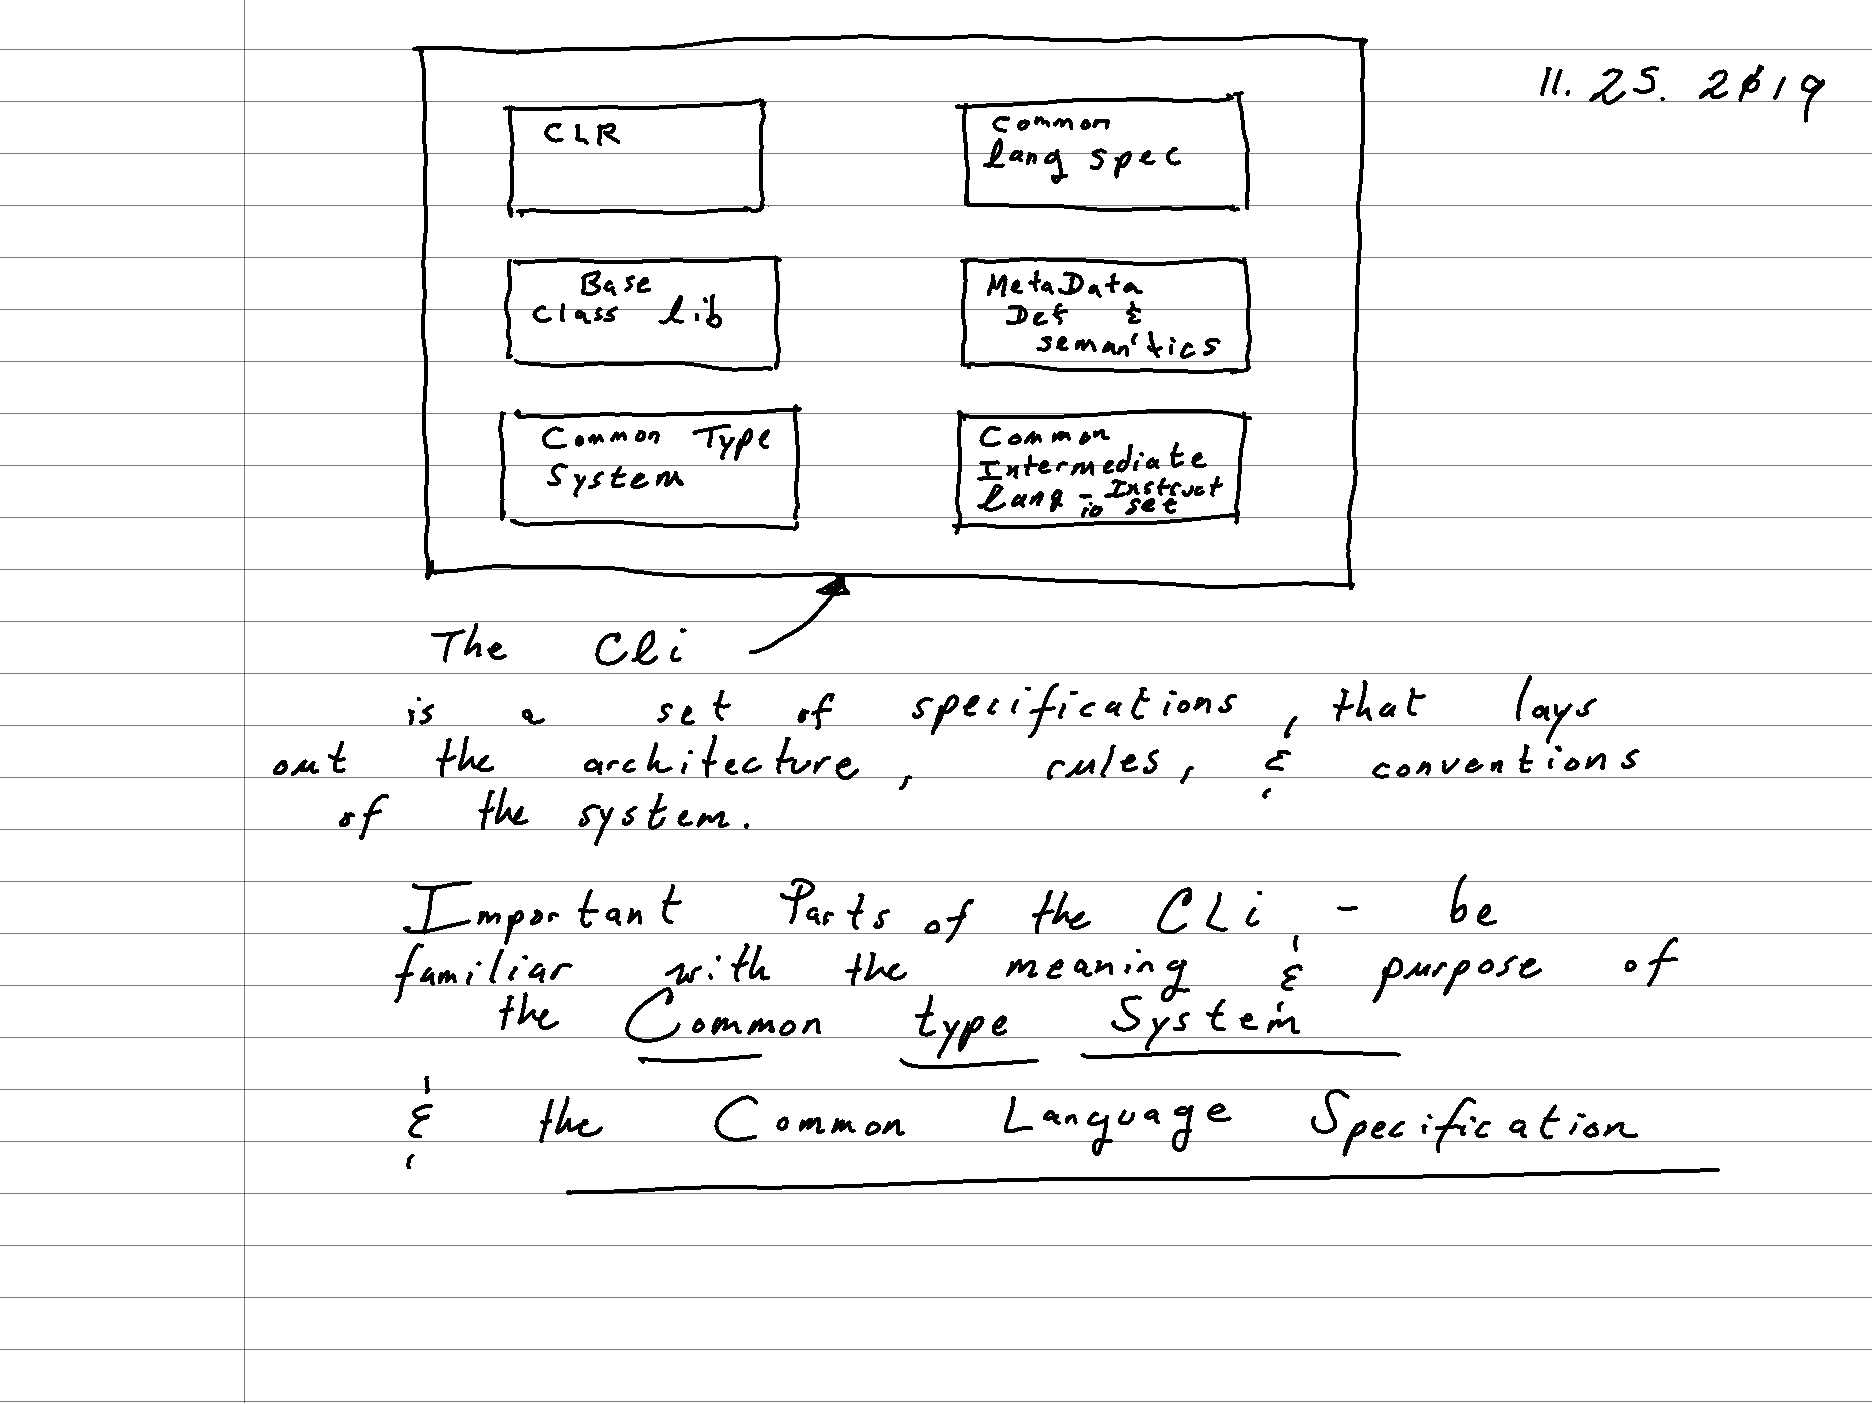 11. 25. 2019
CLR
Common
lang spec
Base
Class lib
MetaData
Def &
semantics
Common Type
System
Common
Intermediate
lang - Instruct
io set
The Cli
is a set of specifications, that lays
out the architecture, rules, & conventions
of the system.
Important Parts of the CLi - be
familiar with the meaning & purpose of
the Common type System
& the Common Language Specification